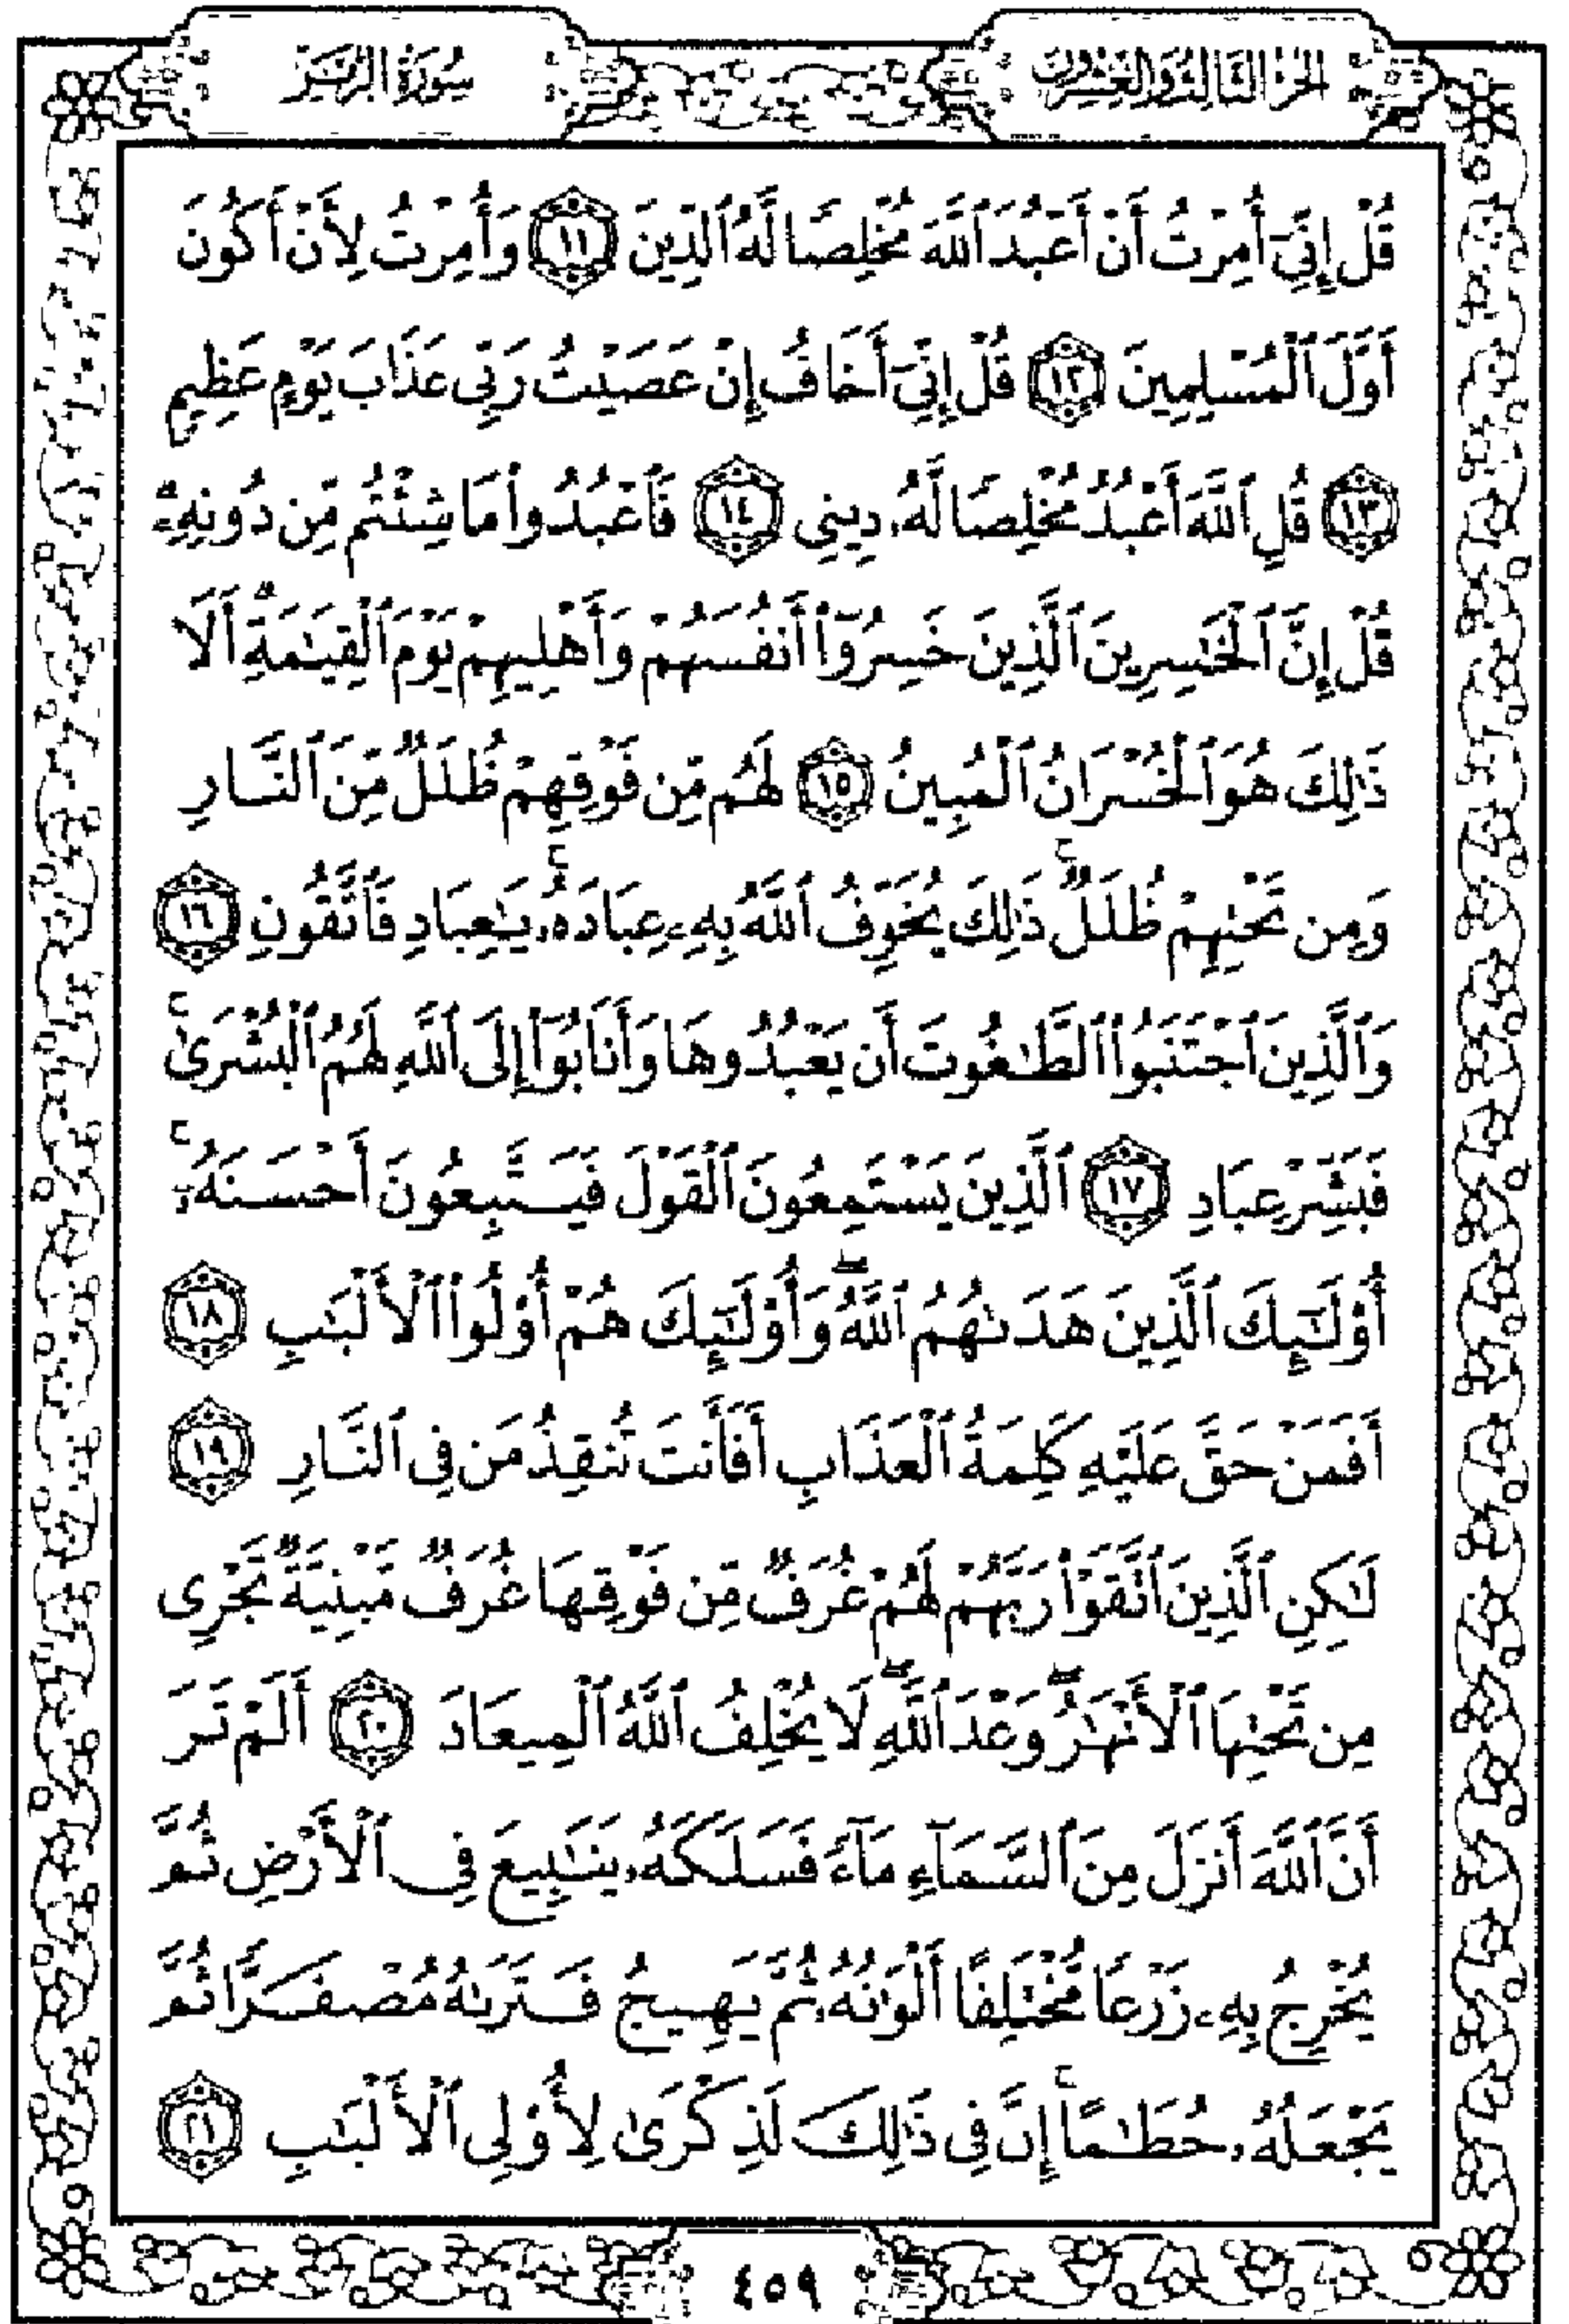 الجزء الثالث والعشرون
سورة الزمر
قُلْ إِنِّىٓ أُمِرْتُ أَنْ أَعْبُدَ ٱللَّهَ مُخْلِصًا لَّهُ ٱلدِّينَ ١١ وَأُمِرْتُ لِأَنْ أَكُونَ
أَوَّلَ ٱلْمُسْلِمِينَ ١٢ قُلْ إِنِّىٓ أَخَافُ إِنْ عَصَيْتُ رَبِّى عَذَابَ يَوْمٍ عَظِيمٍ
١٣ قُلِ ٱللَّهَ أَعْبُدُ مُخْلِصًا لَّهُۥ دِينِى ١٤ فَٱعْبُدُوا۟ مَا شِئْتُم مِّن دُونِهِۦۗ
قُلْ إِنَّ ٱلْخَـٰسِرِينَ ٱلَّذِينَ خَسِرُوٓا۟ أَنفُسَهُمْ وَأَهْلِيهِمْ يَوْمَ ٱلْقِيَـٰمَةِۗ أَلَا
ذَٰلِكَ هُوَ ٱلْخُسْرَانُ ٱلْمُبِينُ ١٥ لَهُم مِّن فَوْقِهِمْ ظُلَلٌ مِّنَ ٱلنَّارِ
وَمِن تَحْتِهِمْ ظُلَلٌۚ ذَٰلِكَ يُخَوِّفُ ٱللَّهُ بِهِۦ عِبَادَهُۥۚ يَـٰعِبَادِ فَٱتَّقُونِ ١٦
وَٱلَّذِينَ ٱجْتَنَبُوا۟ ٱلطَّـٰغُوتَ أَن يَعْبُدُوهَا وَأَنَابُوٓا۟ إِلَى ٱللَّهِ لَهُمُ ٱلْبُشْرَىٰۚ
فَبَشِّرْ عِبَادِ ١٧ ٱلَّذِينَ يَسْتَمِعُونَ ٱلْقَوْلَ فَيَتَّبِعُونَ أَحْسَنَهُۥٓۚ
أُو۟لَـٰٓئِكَ ٱلَّذِينَ هَدَىٰهُمُ ٱللَّهُۖ وَأُو۟لَـٰٓئِكَ هُمْ أُو۟لُوا۟ ٱلْأَلْبَـٰبِ ١٨
أَفَمَنْ حَقَّ عَلَيْهِ كَلِمَةُ ٱلْعَذَابِ أَفَأَنتَ تُنقِذُ مَن فِى ٱلنَّارِ ١٩
لَـٰكِنِ ٱلَّذِينَ ٱتَّقَوْا۟ رَبَّهُمْ لَهُمْ غُرَفٌ مِّن فَوْقِهَا غُرَفٌ مَّبْنِيَّةٌ تَجْرِى
مِن تَحْتِهَا ٱلْأَنْهَـٰرُۖ وَعْدَ ٱللَّهِۖ لَا يُخْلِفُ ٱللَّهُ ٱلْمِيعَادَ ٢٠ أَلَمْ تَرَ
أَنَّ ٱللَّهَ أَنزَلَ مِنَ ٱلسَّمَآءِ مَآءً فَسَلَكَهُۥ يَنَـٰبِيعَ فِى ٱلْأَرْضِ ثُمَّ
يُخْرِجُ بِهِۦ زَرْعًا مُّخْتَلِفًا أَلْوَٰنُهُۥ ثُمَّ يَهِيجُ فَتَرَىٰهُ مُصْفَرًّا ثُمَّ
يَجْعَلُهُۥ حُطَـٰمًاۚ إِنَّ فِى ذَٰلِكَ لَذِكْرَىٰ لِأُو۟لِى ٱلْأَلْبَـٰبِ ٢١
٤٥٩